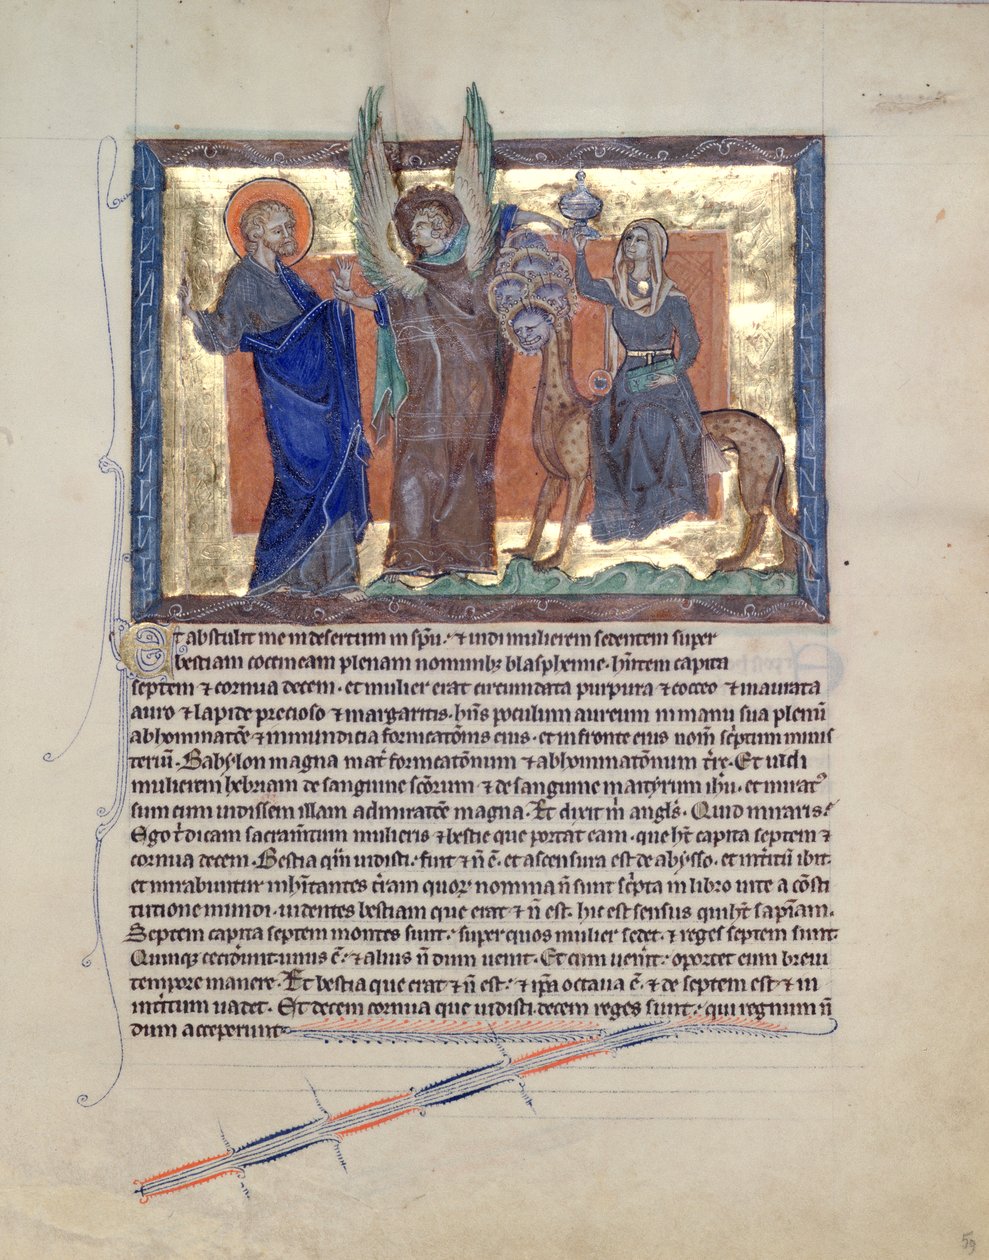 Et abstulit me in desertum in sp̄u. ⁊ uidi mulierem sedentem super
bestiam coccineam plenam nominibꝫ blasphemie. hn̄tem capita
septem ⁊ cornua decem. et mulier erat circumdata purpura ⁊ cocco ⁊ inaurata
auro ⁊ lapide precioso ⁊ margaritis. hn̄s poculum aureum in manu sua plenū
abhominatōe ⁊ inmundicia fornicatōnis eius. et in fronte eius nom̄ sc̄ptum minis
teriū. Babylon magna mat̄ fornicatōnum ⁊ abhominatōnum t̄re. Et uidi
mulierem hebriam de sanguine sc̄orum ⁊ de sanguine martyrum ih̄u. et mirat᷒
sum cum uidissem illam admiratōe magna. Et dixit m̄ angl̄s. Quid miraris?
Ego t̄ dicam sacram̄tum mulieris ⁊ bestie que portat eam. que h̄t capita septem ⁊
cornua decem. Bestia qm̄ uidisti. fuit ⁊ n̄ ē. et ascensura est de abysso. et int̄itū ibit.
et mirabuntur inhītantes t̄ram quoꝝ nomina n̄ sunt sc̄pta in libro uite a cōsti
tutione mundi. uidentes bestiam que erat ⁊ n̄ est. hic est sensus qui h̄t sapīam.
Septem capita septem montes sunt. super quos mulier sedet. ⁊ reges septem sunt.
Quinqꝫ ceciderunt. unus ē. ⁊ alius n̄ dum uenit. Et cum uen̄it. oportet eum breui
tempore manere. Et bestia que erat ⁊ n̄ est. ⁊ ip̄a octaua ē. ⁊ de septem est ⁊ in
int̄itum uadet. Et decem cornua que uidisti. decem reges sunt. qui regnum n̄
dum acceperunt
59